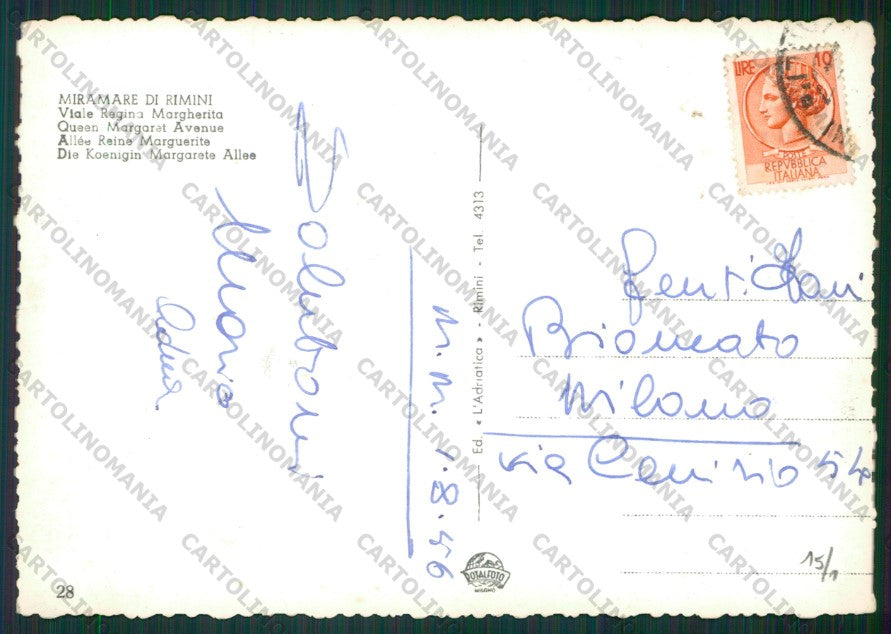 MIRAMARE DI RIMINI
Viale Regina Margherita
Queen Margaret Avenue
Allée Reine Marguerite
Die Koenigin Margarete Allee
LIRE 10
POSTE
REPVBBLICA
ITALIANA
Maria
M.M. 1.8.56
Ed. « L'Adriatica » - Rimini - Tel. 4313
Milano
via 54
ROTALFOTO
MILANO
15/1
28
CARTOLINOMANIA